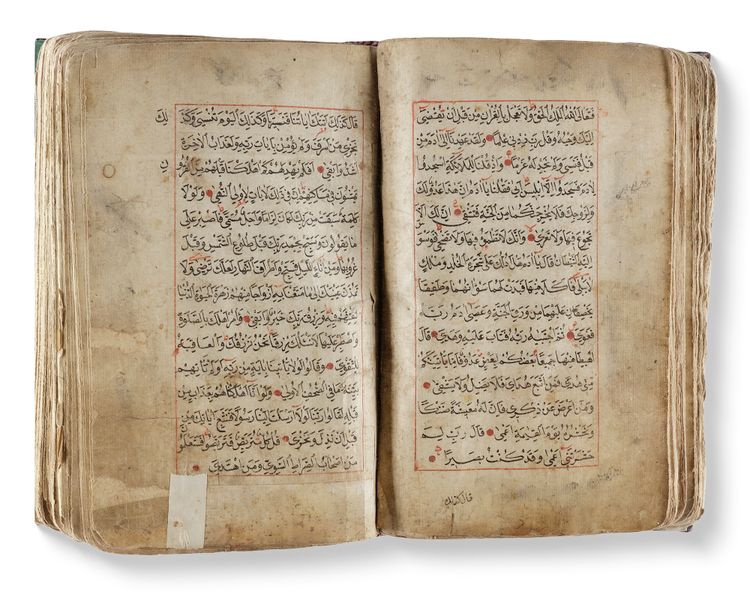 فتعالى الله الملك الحق ولا تعجل بالقران من قبل ان تقضى
اليك وحيه وقل رب زدني علما ولقد عهدنا الى ادم من
قبل فنسي ولم نجد له عزما واذ قلنا للملائكة اسجدوا
لادم فسجدوا الا ابليس ابى فقلنا يا ادم ان هذا عدو لك
ولزوجك فلا يخرجنكما من الجنة فتشقى ان لك الا
تجوع فيها ولا تعرى وانك لا تظمؤا فيها ولا تضحى فوسوس
اليه الشيطان قال يا ادم هل ادلك على شجرة الخلد وملك
لا يبلى فاكلا منها فبدت لهما سواتهما وطفقا
يخصفان عليهما من ورق الجنة وعصى ادم ربه
فغوى ثم اجتبيه ربه فتاب عليه وهدى قال
اهبطا منها جميعا بعضكم لبعض عدو فاما ياتينكم
مني هدى فمن اتبع هداي فلا يضل ولا يشقى
ومن اعرض عن ذكري فان له معيشة ضنكا
ونحشره يوم القيمة اعمى قال رب لم
حشرتني اعمى وقد كنت بصيرا
قال كذلك
قال كذلك اتتك اياتنا فنسيتها وكذلك اليوم تنسى وكذلك
نجزي من اسرف ولم يؤمن بايات ربه ولعذاب الاخرة
اشد وابقى افلم يهد لهم كم اهلكنا قبلهم من القرون
يمشون في مساكنهم ان في ذلك لايات لاولي النهى ولولا
كلمة سبقت من ربك لكان لزاما واجل مسمى فاصبر على
ما يقولون وسبح بحمد ربك قبل طلوع الشمس وقبل
غروبها ومن اناء الليل فسبح واطراف النهار لعلك ترضى ولا
تمدن عينيك الى ما متعنا به ازواجا منهم زهرة الحيوة الدنيا
لنفتنهم فيه ورزق ربك خير وابقى وامر اهلك بالصلوة
واصطبر عليها لا نسئلك رزقا نحن نرزقك والعاقبة
للتقوى وقالوا لولا ياتينا باية من ربه اولم تاتهم
بينة ما في الصحف الاولى ولو انا اهلكناهم بعذاب من
قبله لقالوا ربنا لولا ارسلت الينا رسولا فنتبع اياتك من
قبل ان نذل ونخزى قل كل متربص فتربصوا فستعلمون
من اصحاب الصراط السوي ومن اهتدى